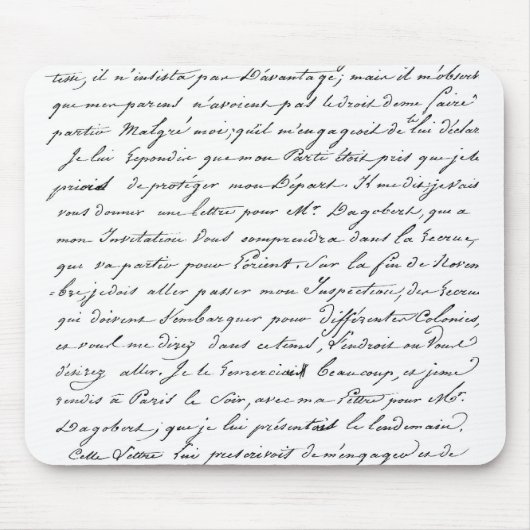 il n'insista pas Davantage; mais il m'observa
que mes parens n'avoient pas le droit de me faire
partir Malgré moi; qu'il m'engageoit de lui déclar
Je lui Repondis que mon Parti étoit pris que je le
priois de protéger mon Départ. Il me dit; je vais
vous donner une lettre pour Mr. Dagobert, qui a
mon Invitation Vous comprendra dans la Recrue,
que va partir pour L'orient. Sur la fin de Novem
=bre, je dois aller passer mon Inspection, des Recrues
qui doivent s'embarquer pour différentes Colonies,
et vous me direz dans ce tems, L'endroit ou Vous
désirez aller. Je le Remerciais Beaucoup, et je me
rendis à Paris le Soir, avec ma Lettre pour Mr.
Dagobert; que je lui présentois le lendemain.
Cette Lettre Lui prescrivoit de m'engager et de